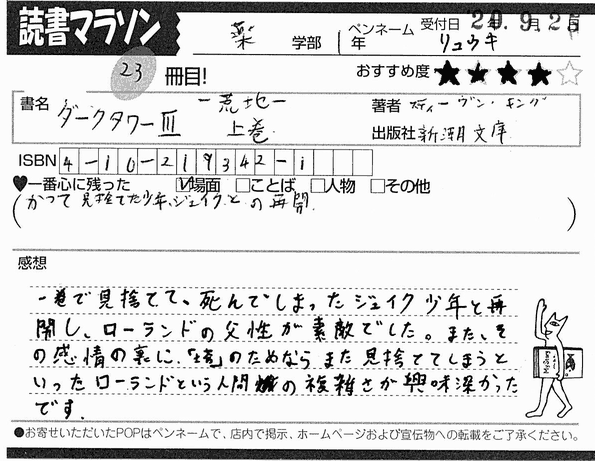 読書マラソン
薬 学部 年 ペンネーム リュウキ 受付日 '20.9.25
23 冊目! おすすめ度 ★★★★☆
書名 ダークタワーⅢ ー荒地ー 上巻
著者 スティーヴン・キング
出版社 新潮文庫
ISBN 4-10-219342-1
♥一番心に残った ☑場面 □ことば □人物 □その他
(かつて見捨てた少年、ジェイクとの再開)
感想
一巻で見捨てて、死んでしまったジェイク少年と再
開し、ローランドの父性が素敵でした。また、そ
の感情の裏に、「塔」のためなら また見捨ててしまうと
いったローランドという人間の複雑さが興味深かった
です。
●お寄せいただいたPOPはペンネームで、店内で掲示、ホームページおよび宣伝物への転載をご了承ください。